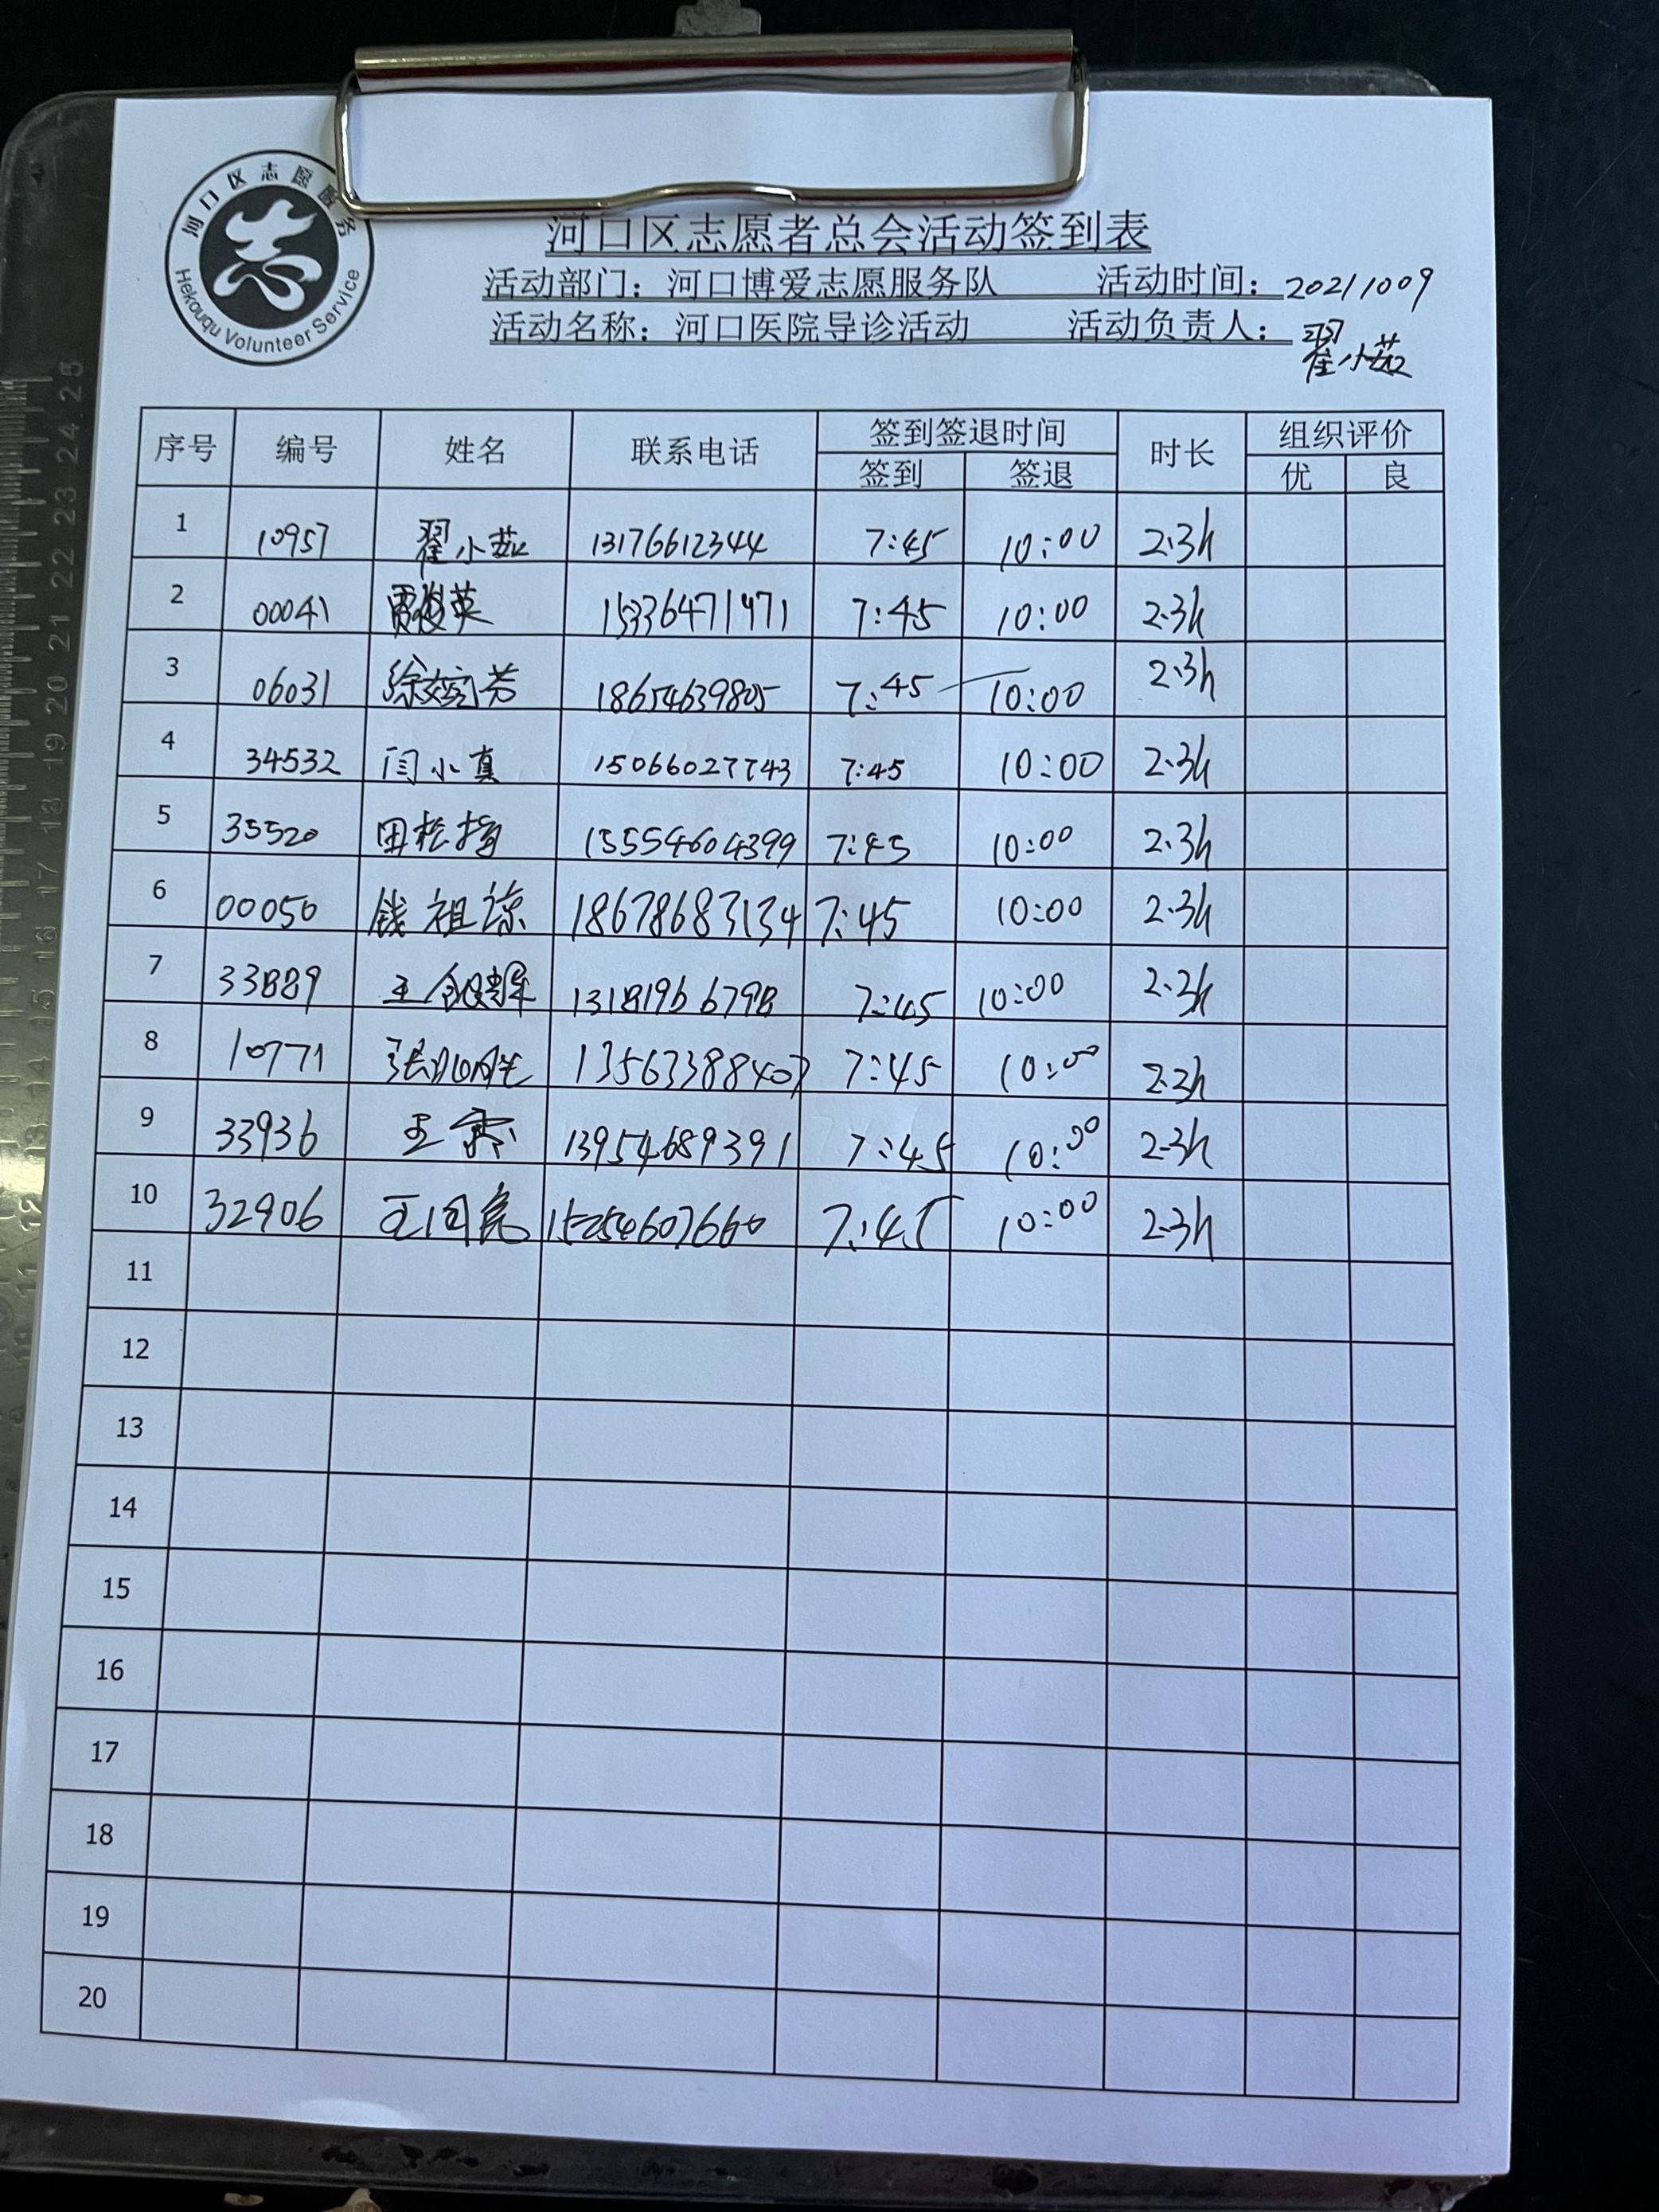 河口区志愿服务
Hekouqu Volunteer Service
河口区志愿者总会活动签到表
活动部门：河口博爱志愿服务队 活动时间：20211009
活动名称：河口医院导诊活动 活动负责人：翟小茹
序号 编号 姓名 联系电话 签到签退时间 签到 签退 时长 组织评价 优 良
1 10957 翟小茹 13176612344 7:45 10:00 2.3h
2 00041 贾俊英 15336471471 7:45 10:00 2.3h
3 06031 18654639805 7:45 10:00 2.3h
4 34532 闫小真 15066027743 7:45 10:00 2.3h
5 35520 15554604399 7:45 10:00 2.3h
6 00050 钱祖谅 18678683134 7:45 10:00 2.3h
7 33889 王 13181966798 7:45 10:00 2.3h
8 10771 张 13563388407 7:45 10:00 2.3h
9 33936 王霞 13954689391 7:45 10:00 2.3h
10 32906 王 15254607660 7:45 10:00 2.3h
11
12
13
14
15
16
17
18
19
20
25
24
23
22
21
20
19
18
17
16
15
14
13
12
11